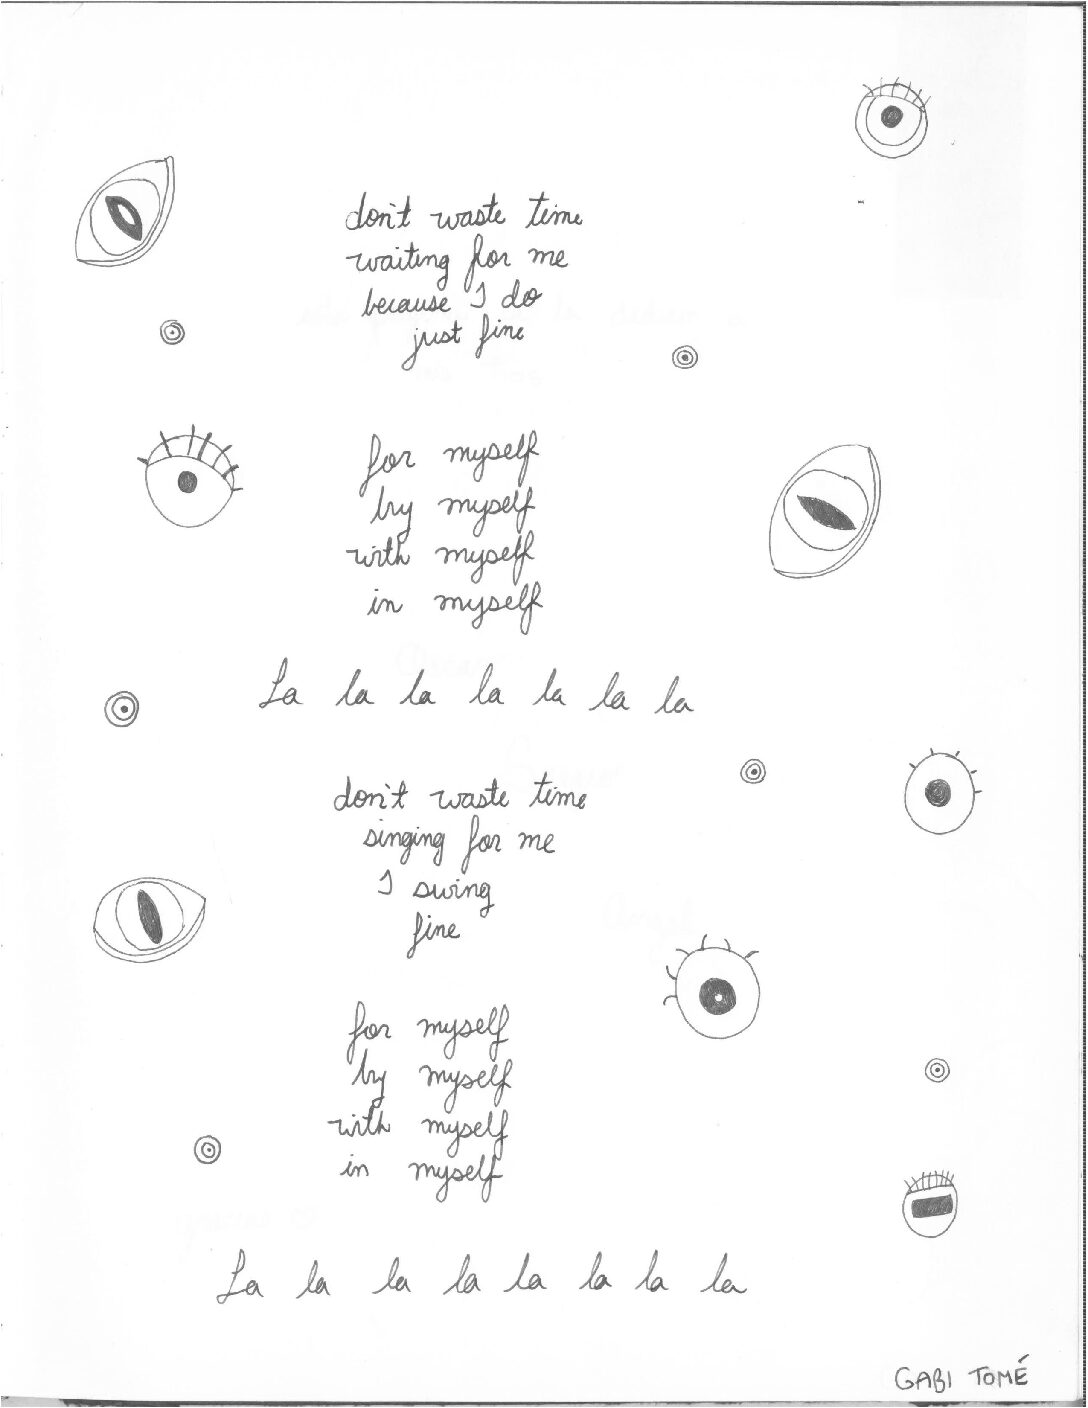 don't waste time
waiting for me
because I do
just fine
for myself
by myself
with myself
in myself
La la la la la la la
don't waste time
singing for me
I swing
fine
for myself
by myself
with myself
in myself
La la la la la la la la
GABI TOMÉ